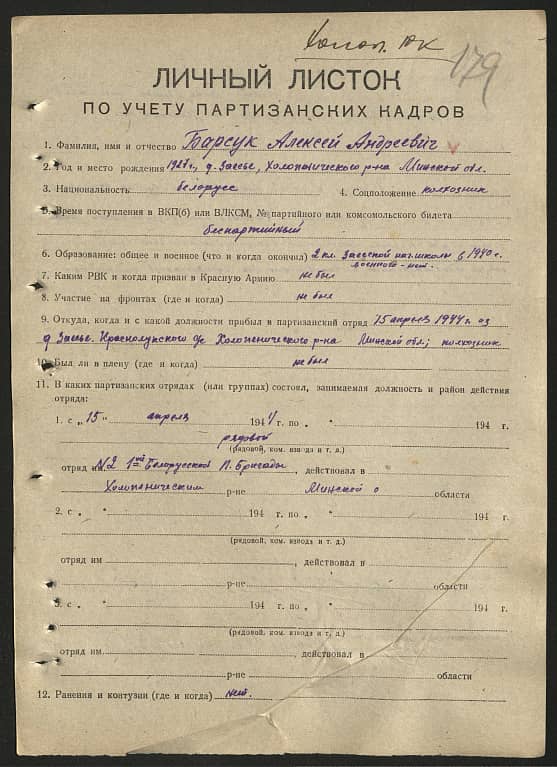 Холоп. РК
179
ЛИЧНЫЙ ЛИСТОК
ПО УЧЕТУ ПАРТИЗАНСКИХ КАДРОВ
1. Фамилия, имя и отчество Барсук Алексей Андреевич
2. Год и место рождения 1927 г., д. Засье, Холопенического р-на Минской обл.
3. Национальность белорусс 4. Соцположение колхозник
5. Время поступления в ВКП(б) или ВЛКСМ, № партийного или комсомольского билета
беспартийный
6. Образование: общее и военное (что и когда окончил) 2 кл. Засеской нач. школы в 1940 г.
военного - нет.
7. Каким РВК и когда призван в Красную Армию не был
8. Участие на фронтах (где и когда) не был
9. Откуда, когда и с какой должности прибыл в партизанский отряд 15 апреля 1944 г. из
д. Засье. Краснолукского с/с Холопенического р-на Минской обл; колхозник
10. Был ли в плену (где и когда) не был
11. В каких партизанских отрядах (или группах) состоял, занимаемая должность и район действия
отряда:
1. с „15" апреля 1944 г. по „ " 194 г.
рядовой
(рядовой, ком. взвода и т. д.)
отряд им №2 1ой Белорусской П. Бригады, действовал в
Холопеническим р-не Минской о области
2. с „ " 194 г. по „ " 194 г.
(рядовой, ком. взвода и т. д.)
отряд им , действовал в
р-не области
3. с „ " 194 г. по „ " 194 г.
(рядовой, ком. взвода и т. д.)
отряд им. , действовал в
р-не области
12. Ранения и контузии (где и когда) нет.